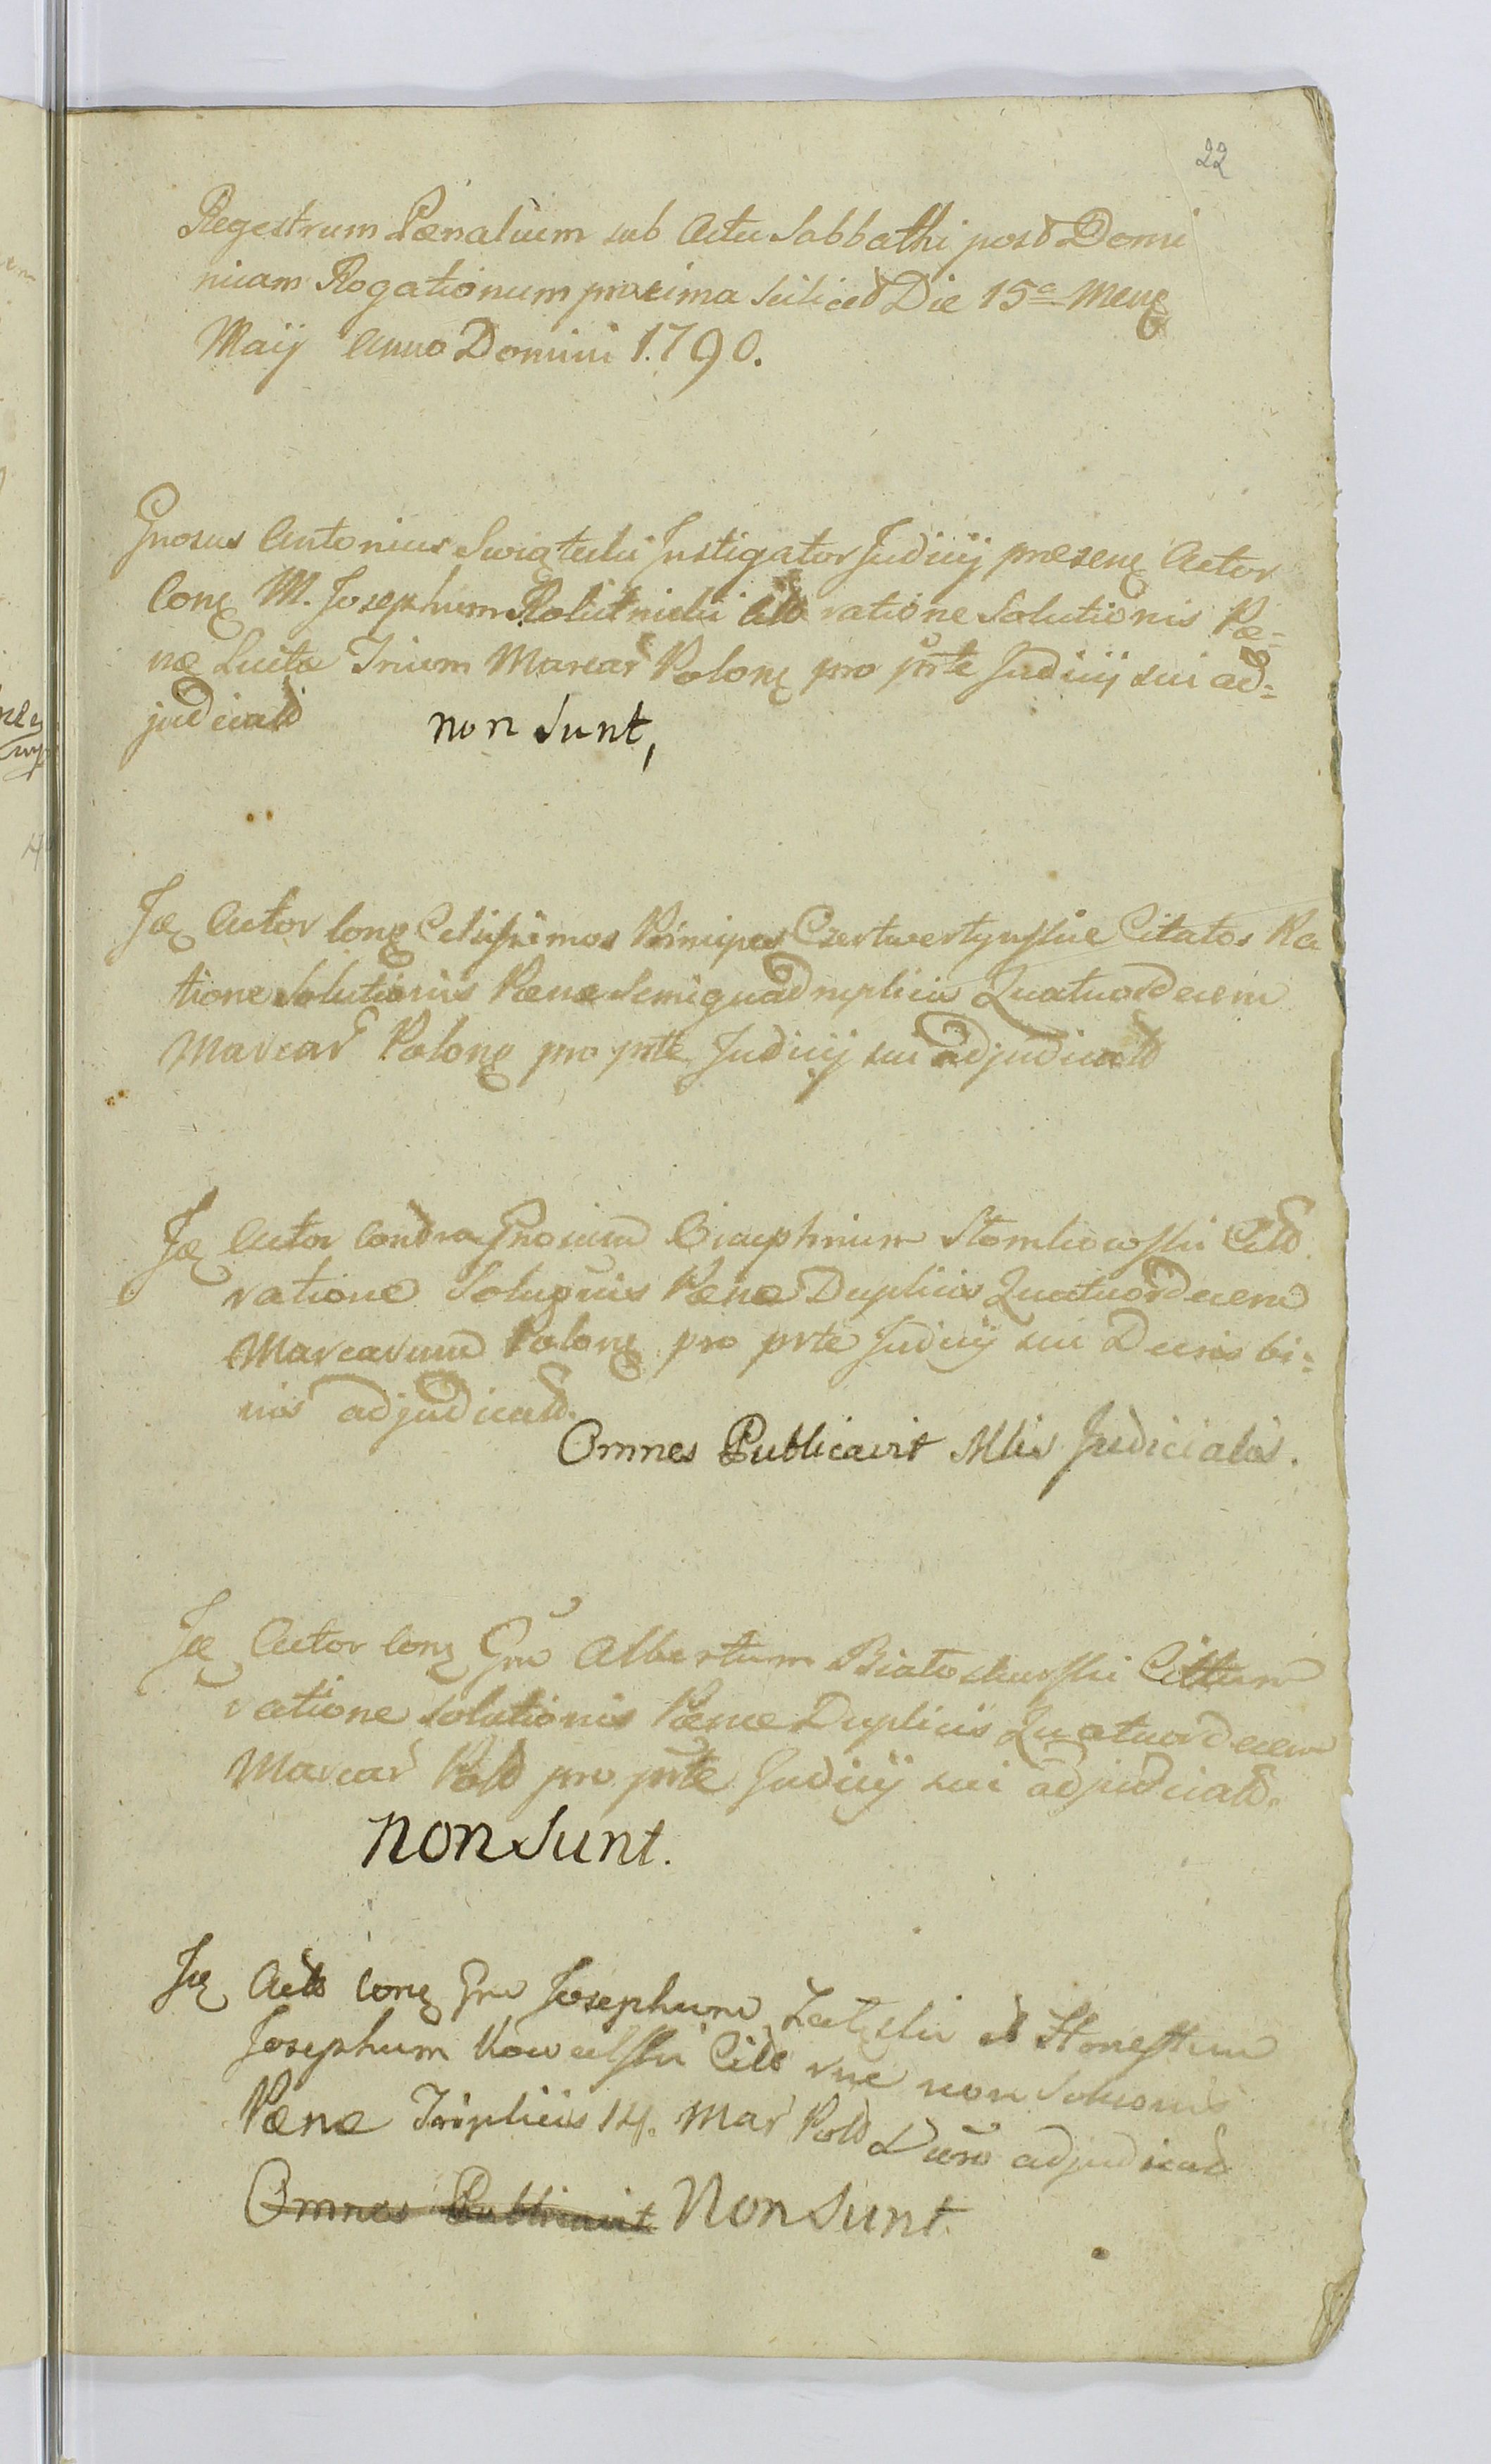 22
Regestrum Pœnalium sub Actu Sabbathi post Domi
nicam Rogationum proxima scilicet Die 15a Mens
Maij Anno Domini 1790.
Gnosus Antonius Swiątecki Instigator Judicij praesens Actor
Cons M. Josephum Rolutnicki Citt ratione Solutionis Pæ=
næ Luita Trium Marcar Polons pro prte Judicij sui ad=
judicatt non sunt,
Ide Actor Cons Celsissimos Principes Czertwertynskie Citatos Ra
tione Solutionis Pœnæ Semiquadruplicis Quatuordecem
Marcar Polons pro prte Judicij sui adjudicatt
Ide Actor Contra Gnosum Stomkowski Citt
ratione Soluonis Pœnæ Duplicis Quatuordecem
Marcarum Polons pro prte Judicij sui Decris bi=
nis adjudicatt.
Omnes Publicavit Mlis Judicialis.
Ide Actor Cons Gnu Albertum Białoskurski Cittum
ratione Solutionis Pœnæ Duplicis Quatuordecem
Marcar Poltt pro prte Judicij sui adjudicatt.
non sunt.
Ide Actt Cons Gnu Josephum Załęski et Honestum
Josephum Kowalski Citt rne non Soluonis
Pœnæ Triplicis 14. Mar Poltt Decro adjudicatt
Omnes Publicavit Non sunt